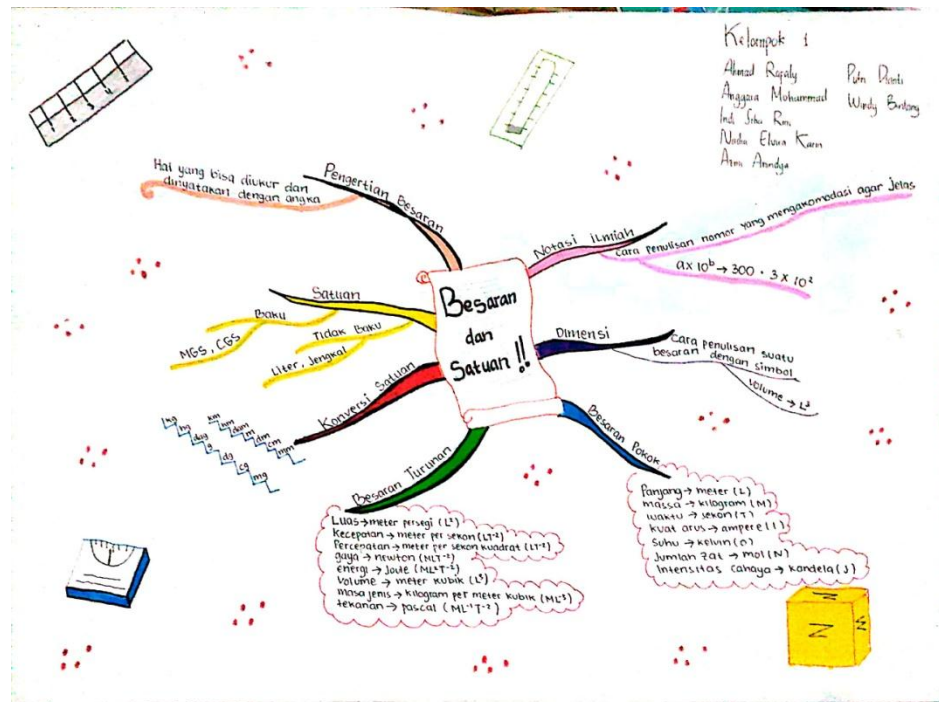 Kelompok 1
Ahmad Rafaly
Anggara Mohammad
Windy Bintang
Besaran
dan
Satuan !!
Pengertian Besaran
Hal yang bisa diukur dan
dinyatakan dengan angka
Satuan
Baku
MGS, CGS
Tidak Baku
Liter, Jengkal
Konversi Satuan
kg
hg
dag
g
dg
cg
mg
km
hm
dam
m
dm
cm
mm
Besaran Turunan
Luas → meter persegi (L²)
Kecepatan → meter per sekon (LT⁻¹)
Percepatan → meter per sekon kuadrat (LT⁻²)
gaya → newton (MLT⁻²)
energi → Joule (ML²T⁻²)
Volume → meter kubik (L³)
masa jenis → kilogram per meter kubik (ML⁻³)
tekanan → pascal (ML⁻¹T⁻²)
Notasi iLmiah
Cara penulisan nomor yang mengakomodasi agar jelas
a x 10ᵇ → 300 · 3 x 10²
Dimensi
Cara penulisan suatu
besaran dengan simbol
Volume → L³
Besaran Pokok
Panjang → meter (L)
massa → kilogram (M)
waktu → sekon (T)
kuat arus → ampere (I)
Suhu → kelvin (O)
Jumlah zat → mol (N)
Intensitas cahaya → kandela (J)
N